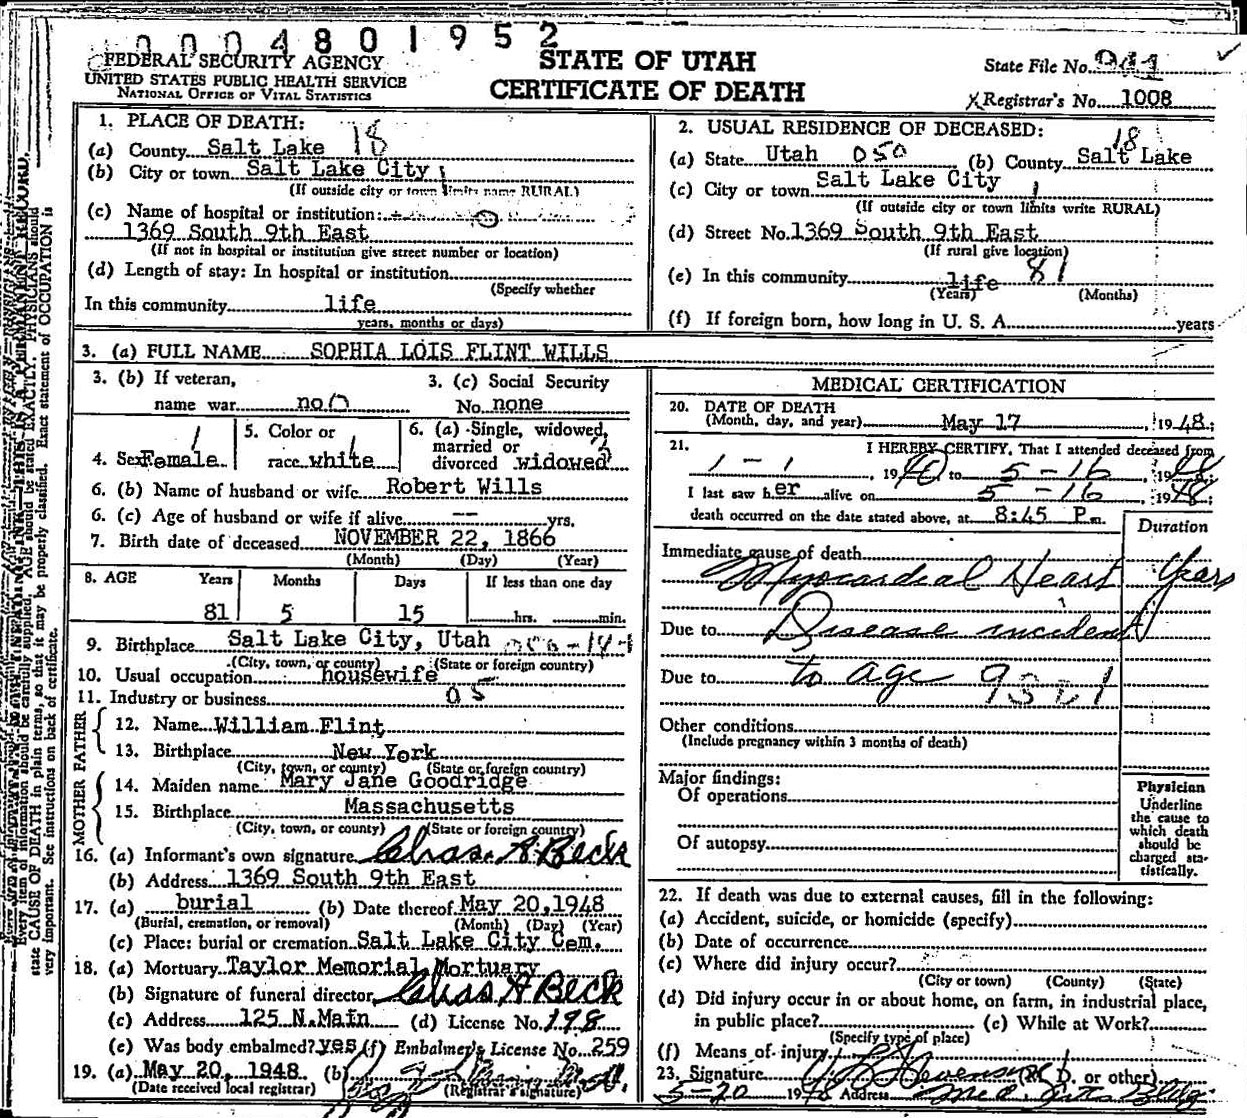 0004801952
FEDERAL SECURITY AGENCY
UNITED STATES PUBLIC HEALTH SERVICE
NATIONAL OFFICE OF VITAL STATISTICS
STATE OF UTAH
CERTIFICATE OF DEATH
State File No. 941
Registrar's No. 1008
1. PLACE OF DEATH:
(a) County Salt Lake 18
(b) City or town Salt Lake City
(If outside city or town limits name RURAL)
(c) Name of hospital or institution:
1369 South 9th East
(If not in hospital or institution give street number or location)
(d) Length of stay: In hospital or institution
(Specify whether
In this community life
years, months or days)
2. USUAL RESIDENCE OF DECEASED:
(a) State Utah 050 (b) County Salt Lake 18
(c) City or town Salt Lake City
(If outside city or town limits write RURAL)
(d) Street No. 1369 South 9th East
(If rural give location)
(e) In this community life 81
(Years) (Months)
(f) If foreign born, how long in U. S. A. years
3. (a) FULL NAME SOPHIA LOIS FLINT WILLS
3. (b) If veteran,
name war no
3. (c) Social Security
No. none
4. Sex Female
5. Color or
race white
6. (a) Single, widowed,
married or
divorced widowed
6. (b) Name of husband or wife Robert Wills
6. (c) Age of husband or wife if alive -- yrs.
7. Birth date of deceased NOVEMBER 22, 1866
(Month) (Day) (Year)
8. AGE Years Months Days If less than one day
81 5 15 hrs. min.
9. Birthplace Salt Lake City, Utah
(City, town, or county) (State or foreign country)
10. Usual occupation housewife
11. Industry or business 05
FATHER
12. Name William Flint
13. Birthplace New York
(City, town, or county) (State or foreign country)
MOTHER
14. Maiden name Mary Jane Goodridge
15. Birthplace Massachusetts
(City, town, or county) (State or foreign country)
16. (a) Informant's own signature Chas. A Beck
(b) Address 1369 South 9th East
17. (a) burial (b) Date thereof May 20, 1948
(Burial, cremation, or removal) (Month) (Day) (Year)
(c) Place: burial or cremation Salt Lake City Cem.
18. (a) Mortuary Taylor Memorial Mortuary
(b) Signature of funeral director Chas A Beck
(c) Address 125 N. Main (d) License No. 198
(e) Was body embalmed? yes (f) Embalmer's License No. 259
19. (a) May 20, 1948 (b)
(Date received local registrar) (Registrar's signature)
MEDICAL CERTIFICATION
20. DATE OF DEATH
(Month, day, and year) May 17, 1948;
21. I HEREBY CERTIFY, That I attended deceased from
1-1, 1940 to 5-16, 1948
I last saw her alive on 5-16, 1948;
death occurred on the date stated above, at 8:45 P.m.
Duration
Immediate cause of death
Myocardial Heart Years
Due to Disease incident
Due to to age 93 1
Other conditions
(Include pregnancy within 3 months of death)
Major findings:
Of operations
Of autopsy
Physician
Underline
the cause to
which death
should be
charged sta-
tistically.
22. If death was due to external causes, fill in the following:
(a) Accident, suicide, or homicide (specify)
(b) Date of occurrence
(c) Where did injury occur?
(City or town) (County) (State)
(d) Did injury occur in or about home, on farm, in industrial place,
in public place? (e) While at Work?
(Specify type of place)
(f) Means of injury
23. Signature (M. D. or other)
5-20 1948 Address Med. Arts Bldg
Every item of information should be carefully supplied. AGE should be stated EXACTLY. PHYSICIANS should
state CAUSE OF DEATH in plain terms, so that it may be properly classified. Exact statement of OCCUPATION is
very important. See instructions on back of certificate.